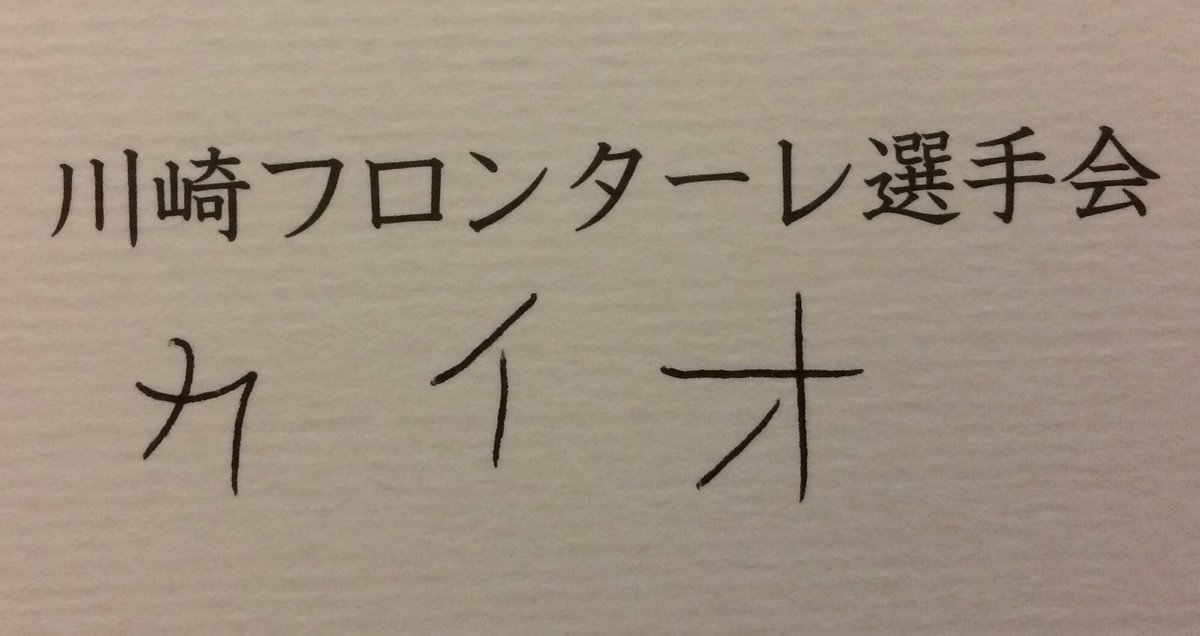 川崎フロンターレ選手会
カイオ